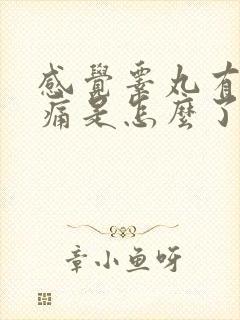 感覺睾丸有
痛是怎麼了
章小魚呀